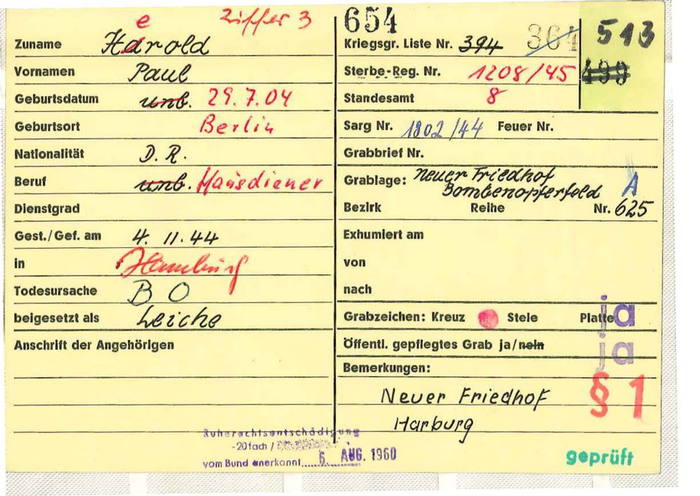 e Ziffer 3
Zuname Harold
Vornamen Paul
Geburtsdatum unb. 29.7.04
Geburtsort Berlin
Nationalität D.R.
Beruf unb. Hausdiener
Dienstgrad
Gest./Gef. am 4.11.44
in Hamburg
Todesursache BO
beigesetzt als Leiche
Anschrift der Angehörigen
Ruherechtsentschädigung
-20fach /
vom Bund anerkannt 6. AUG. 1960
654
Kriegsgr. Liste Nr. 394 364 513
Sterbe-Reg. Nr. 1208/45 499
Standesamt 8
Sarg Nr. 1802/44 Feuer Nr.
Grabbrief Nr.
Grablage: Neuer Friedhof
Bombenopferfeld A
Bezirk Reihe Nr. 625
Exhumiert am
von
nach
Grabzeichen: Kreuz Stele Platte ja
Öffentl. gepflegtes Grab ja/nein ja
Bemerkungen:
§ 1
Neuer Friedhof
Harburg
geprüft